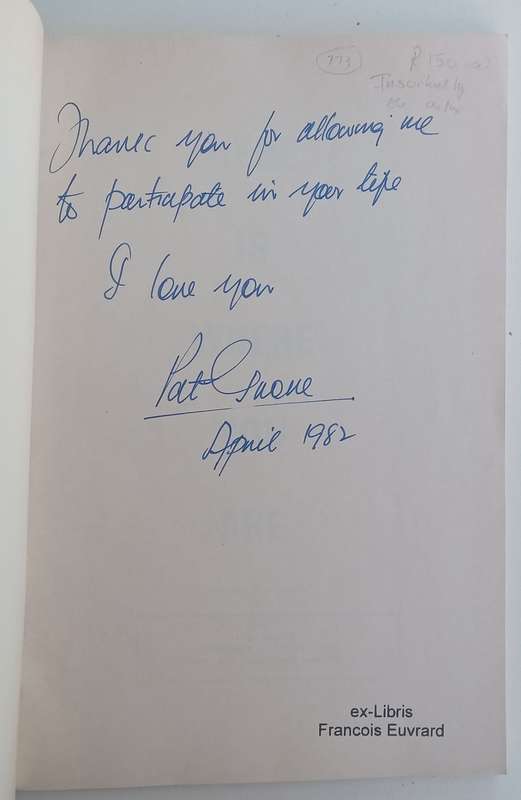 773
R150-00
Inscribed by
the author
Thank you for allowing me
to participate in your life
I love you
Pat Grove
April 1982
ex-Libris
Francois Euvrard